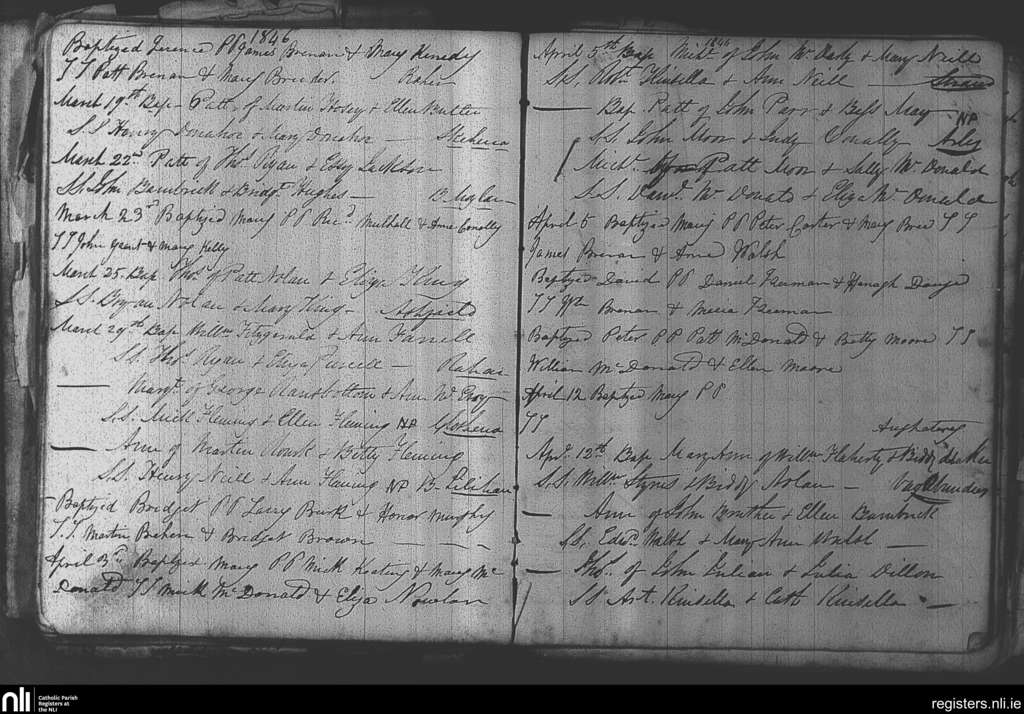 1846
Baptized Terence PP James Brenan & Mary Kenedy
TT Patt Brenan & Mary Breeder.
March 19th Bap Patt. of Martin Hosey & Ellen Butler
S.S Henry Donahoe & Mary Donahoe —
March 22d Patt of Thos Ryan & Essy Jackson
SS John Bambrick & Bridgt Hughes —
March 23d Baptized Mary PP Ricd Mulhall & Anne Conolly
TT John Grent & Mary Kelly
March 25. Bap Thos of Patt Nolan & Eliza King
S.S. Bryan Nolan & Mary King —
March 29th Bap Willm Fitzgerald & Ann Farrell
SS. Thos Ryan & Eliza Purcell — Rahan
— Margt of George Ransbottom & Ann McEvoy
S.S. Mick Fleming & Ellen Fleming NP
— Ann of Martin Rourk & Betty Fleming
S.S. Henry Neill & Ann Fleming NP
Baptized Bridget PP Larry Burk & Honor Murphy
T.T. Martin Behern & Bridget Brown — — —
April 3rd Baptized Mary PP Mick Keating & Mary Mc
Donald TT Mick McDonald & Eliza Nowlan
1846
April 5th Bap Michl of John McDarby & Mary Neill
S.S. Robt Kinsella & Ann Neill —
— Bap Patt of John Parr & Bess May NP
S.S. John Moor & Judy Conally Arles
Michl Patt Moor & Sally McDonald
S.S. Danl McDonald & Eliza McDonald
April 5 Baptized Mary PP Peter Carter & Mary Bree TT
James Brenan & Anne Walsh
Baptized David PP Daniel Freeman & Hanagh
TT Brenan & Maria Freeman
Baptized Peter PP Patt McDonald & Betty Moore TT
William McDonald & Ellen Moore
April 12 Baptized Mary PP
TT
Aprl 12th Bap Mary Ann of Willm Flaherty & Biddy
S.S. Willm Lyns & Biddy Nolan —
— Ann of John & Ellen Bambrick
SS. Edwd Walsh & Mary Ann Walsh —
— Thos. of John & Julia Dillon
SS Art. Kinsella & Cath Kinsella —
nli
Catholic Parish
Registers at
the NLI
registers.nli.ie